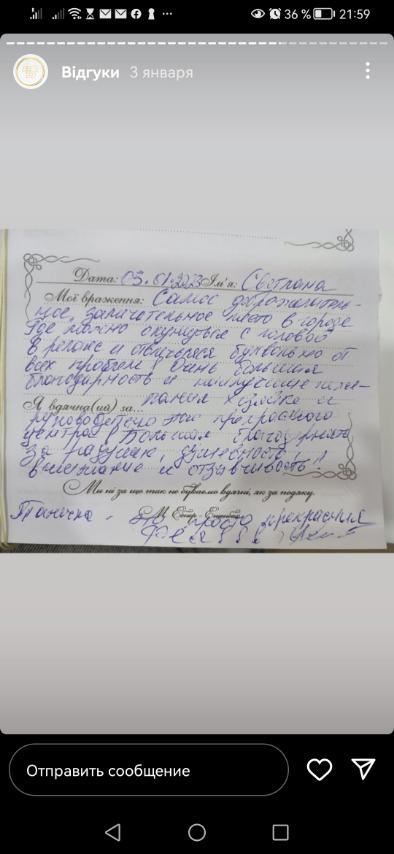 36 % 21:59
Відгуки 3 января
Дата: 03.01.2023 Ім'я: Светлана
Мої враження: Самое доброжелатель-
ное, замечательное место в городе
Где можно окунуться с головой
в релакс и отвлечься буквально от
всех проблем! Очень большая
благодарность и наилучшие поже-
лания хозяйке и
Я вдячна(ий) за...
руководителю этого прекрасного
центра! Большая благодарность
за радушие, душевность,
внимание и отзывчивость!
Ми ні за що так не буваємо вдячні, як за подяку.
просто прекрасная
Отправить сообщение